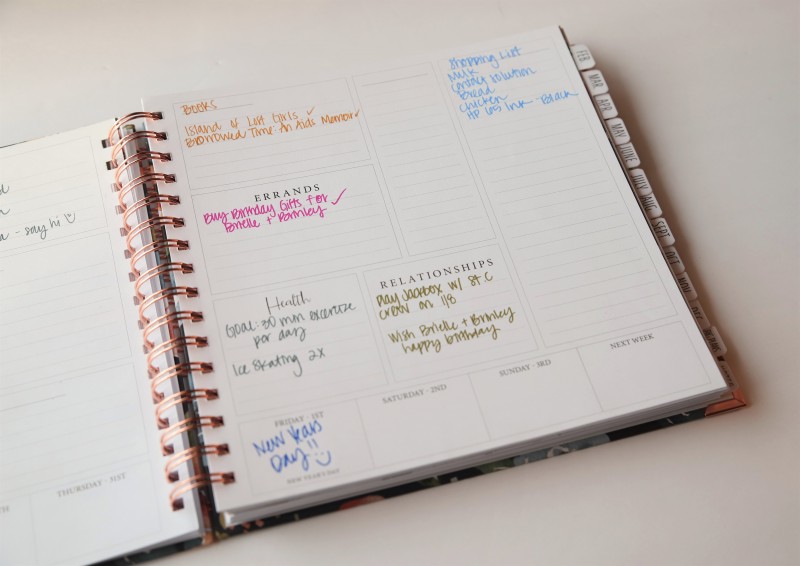 - say hi
THURSDAY · 31ST
BOOKS
Island of Lost Girls ✓
Borrowed Time: An Aids Memoir ✓
ERRANDS
Buy Birthday Gifts for ✓
Brielle + Brinley
Health
Goal: 30 min excercize
per day
Ice Skating 2x
RELATIONSHIPS
Play Jackbox w/ St. C
crew on 1/8
Wish Brielle + Brinley
happy birthday
Shopping List
Milk
Contact solution
Bread
Chicken
Ink - Black
FRIDAY · 1ST
New Years
Day!!
NEW YEAR'S DAY
SATURDAY · 2ND
SUNDAY · 3RD
NEXT WEEK
FEB
MAR
APR
MAY
JUNE
JULY
AUG
SEPT
OCT
NOV
DEC